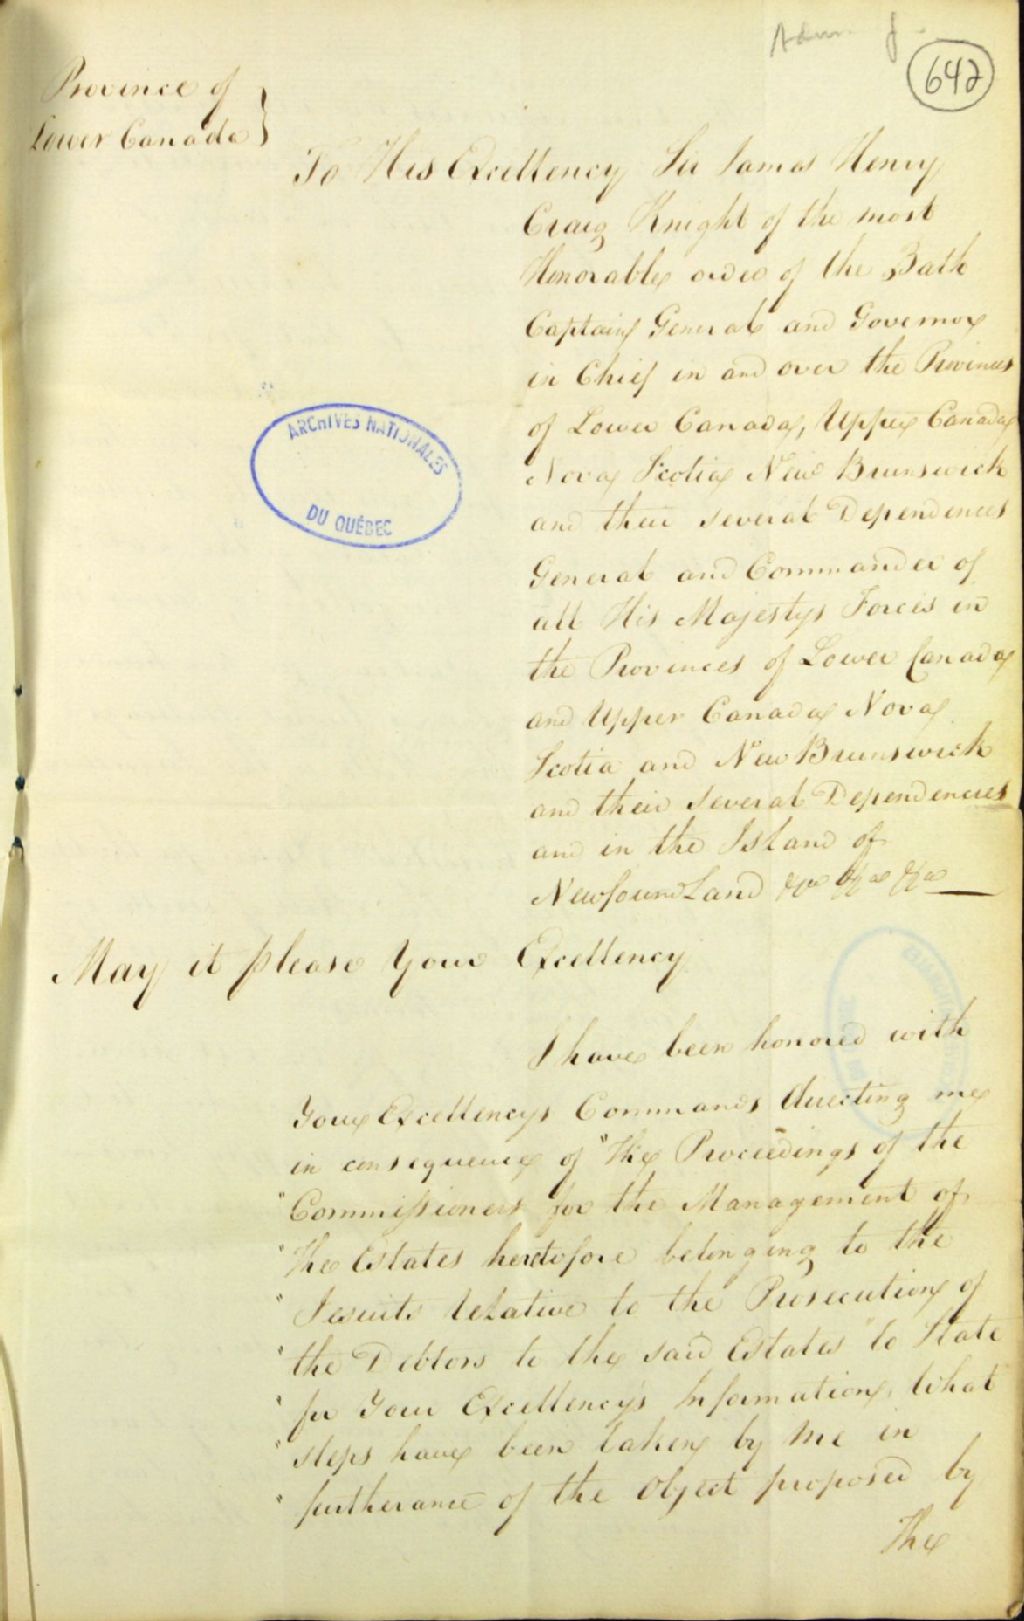 642
Province of
Lower Canada }
To His Excellency Sir James Henry
Craig Knight of the most
Honorable order of the Bath
Captain General and Governor
in Chief in and over the Provinces
of Lower Canada, Upper Canada
Nova Scotia New Brunswick
and their several Dependencies
General and Commander of
all His Majestys Forces in
the Provinces of Lower Canada
and Upper Canada Nova
Scotia and New Brunswick
and their several Dependencies
and in the Island of
NewfoundLand &ca &ca &ca
ARCHIVES NATIONALES
DU QUÉBEC
May it please Your Excellency
I have been honored with
Your Excellencys Commands directing me
in consequence of "The Proceedings of the
" Commissioners for the Management of
" the Estates heretofore belonging to the
" Jesuits Relative to the Prosecution of
" the Debtors to the said Estates" to State
" for Your Excellency's Information, What
" steps have been taken by Me in
" furtherance of the Object proposed by
The